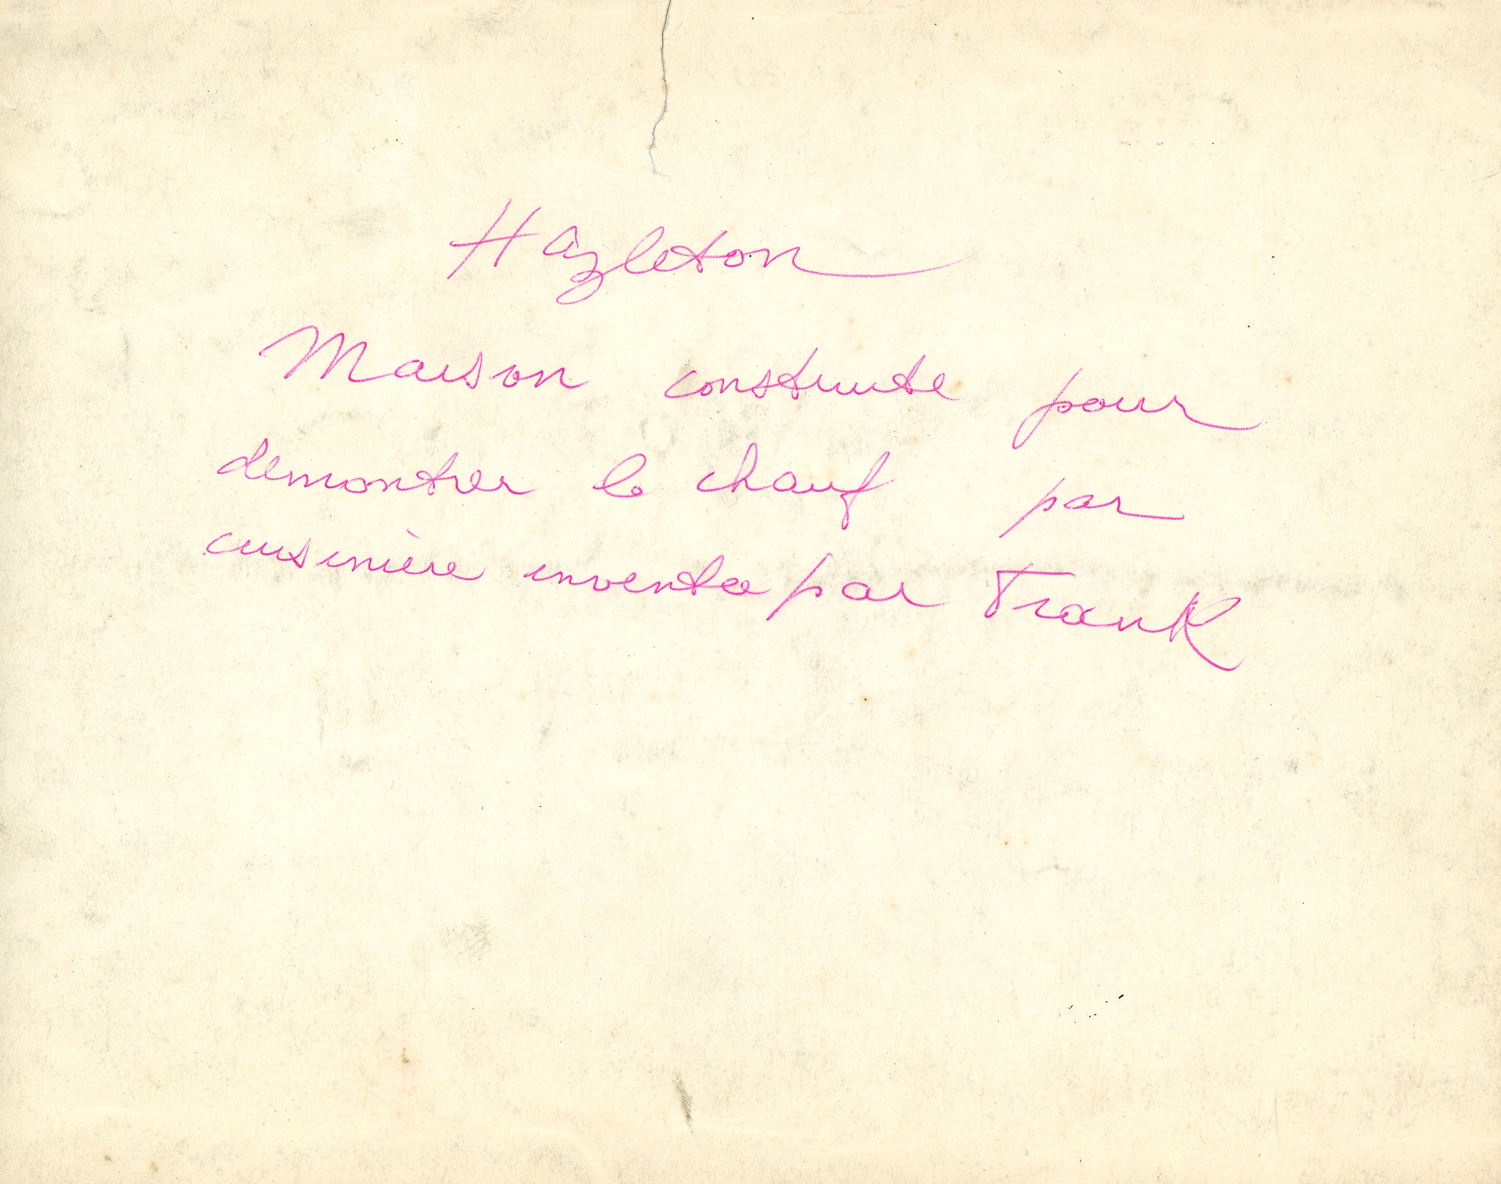 Hazleton
Maison construite pour
demontrer le chauf par
cuisinière inventee par Frank